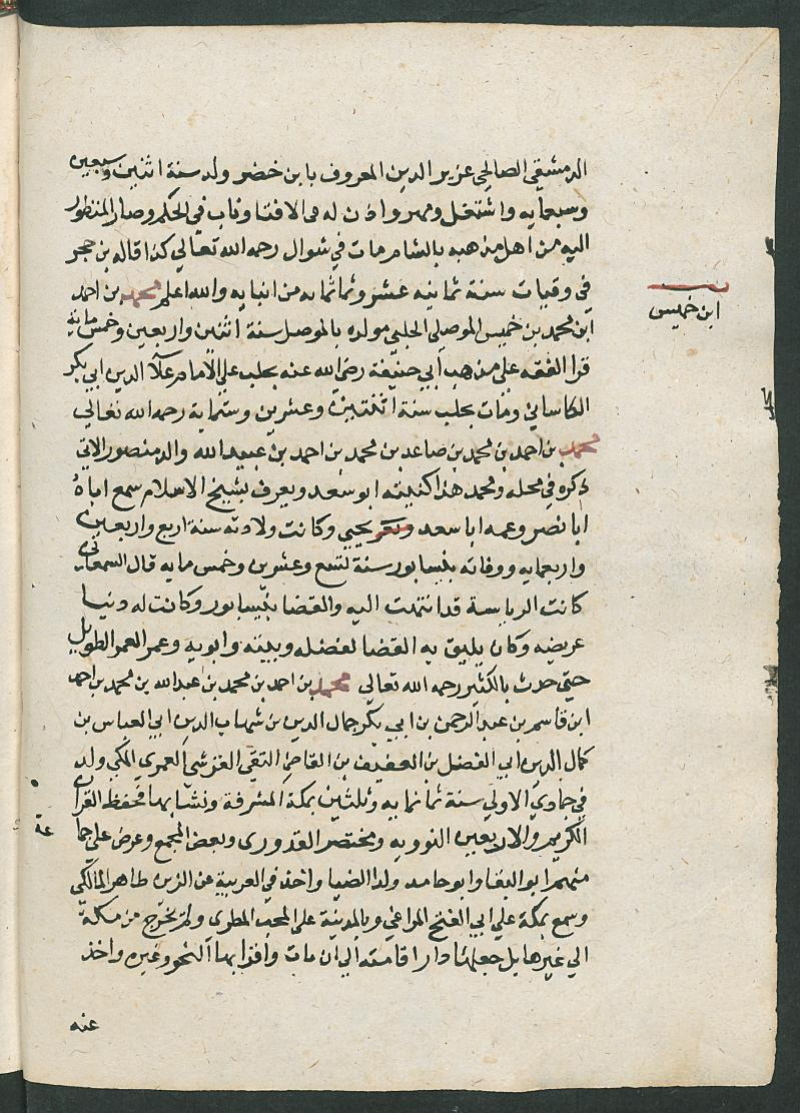 الدمشقي الصالحي عزيز الدين المعروف بابن خضر ولد سنة اثنين وسبعين
وسبعمايه واشتغل ومهر واذن له في الافتا وناب في الحكم وصار المنظور
اليه من اهل مذهبه بالشام مات في شوال رحمه الله تعالي كذا قاله بن حجر
في وفيات سنة ثمانيه عشر وثمانمايه من انبايه والله اعلم محمد بن احمد
ابن خميس
ابن محمد بن خميس الموصلي الحلبي مولده بالموصل سنة اثنين واربعين وخمس مائة
قرا الفقه علي مذهب ابي حنيفة رضي الله عنه بحلب علي الامام علآ الدين ابي بكر
الكاساني ومات بحلب سنة اثنتين وعشرين وستماية رحمه الله تعالي
محمد بن احمد بن محمد بن صاعد بن محمد بن احمد بن عبيد الله والد منصور الاتي
ذكره في محله ومحمد هذا كنيته ابو سعد ويعرف بشيخ الاسلام سمع اباهُ
ابا نصر وعمه ابا سعد يحيي وكانت ولادته سنة اربع واربعين
واربعمايه ووفاته بنيسابور سنة تسع وعشرين وخمس مايه قال السمعاني
كانت الرياسة قد انتهت اليه والقضا بنيسابور وكانت له دنيا
عريضه وكان يليق به القضا لفضله وبيته وابويه وعمر العمر الطويل
حتي حدث بالكثير رحمه الله تعالي محمد بن احمد بن محمد بن عبدالله بن محمد بن احمد
ابن قاسم بن عبد الرحمن بن ابي بكر جمال الدين بن شهاب الدين ابي العباس بن
كمال الدين ابي الفضل بن العفيف بن القاضي التقي القرشي العمري المكي ولد
في جمادي الاولي سنة ثمانمايه وثلثين بمكة المشرفة ونشا بها فحفظ القران
الكريم والاربعين النوويه ومختصر القدوري وبعض المجمع وعرض علي جما
عة
منهم ابو البقا وابو حامد ولدا الضيا واخذ في العربية عن الزين طاهر المالكي
وسمع بمكة علي ابي الفتح المراغي وبالمدينة علي المحب المطري ولم يخرج من مكة
الي غيرها بل جعلها دار اقامته الي ان مات واقرا بها النحو وغيره واخذ
عنه